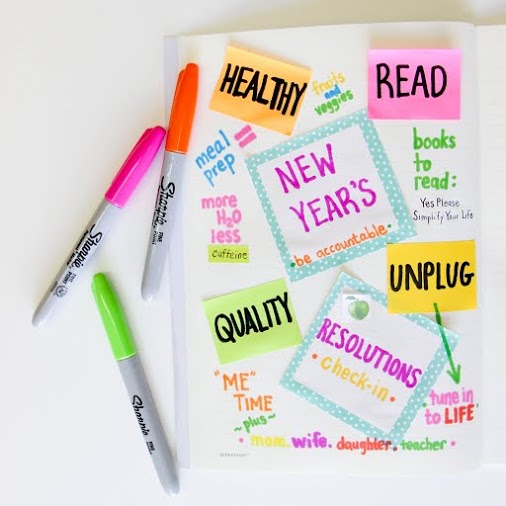 HEALTHY
fruits
and
veggies
READ
meal
prep
=
more
H2O
less
caffeine
NEW
YEAR'S
be accountable
books
to
read:
Yes Please
Simplify Your Life
UNPLUG
QUALITY
RESOLUTIONS
check-in
"ME"
TIME
~plus~
mom. wife. daughter. teacher
tune in
to LIFE
Sharpie
Sharpie
Sharpie